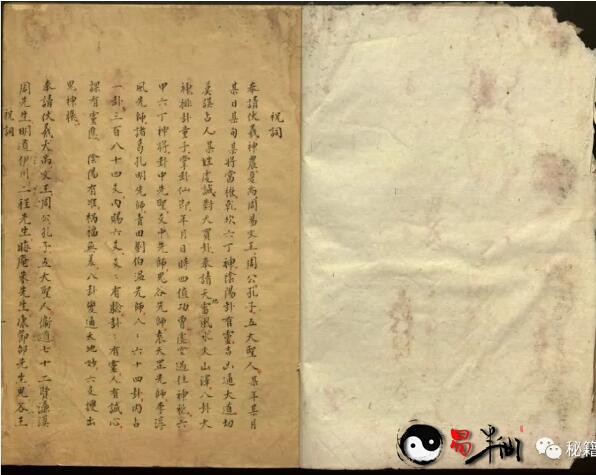 祝詞
奉請伏羲神農夏禹周易文王周公孔子五大聖人某年某月
某日某旬某將當橄乾坎六丁神陰陽卦有靈吉凶通大道切
某占人某姓虔誠對天買卦奉請天地雷風水火山澤八卦大
神排卦童子掌卦仙郎年月日時四值功曹虛空過往神祇六
甲六丁神將卦中先聖爻中先師鬼谷先師袁天罡先師李淳
風先師諸葛孔明先師青田劉伯溫先師八八六十四卦內占
一卦三百八十四爻內賜六爻爻爻有驗卦卦有靈人有誠心
課有靈應陰陽有准禍福無差八卦變通天地妙六爻搜出
鬼神機
奉請伏羲大禹文王周公孔子五大聖人衛道七十二賢濂溪
周先生明道伊川二程先生晦庵朱先生康節邵先生鬼谷王
祝詞
易半仙
秘籍